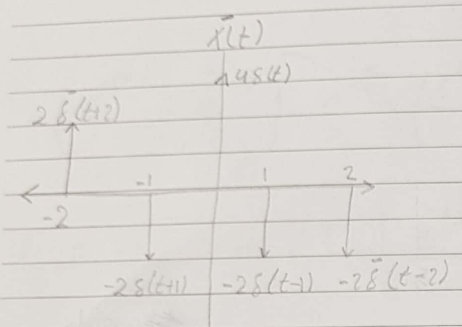 ẍ(t)
4δ(t)
2δ̈(t+2)
-1 1 2
-2
-2δ(t+1) -2δ(t-1) -2δ̈(t-2)